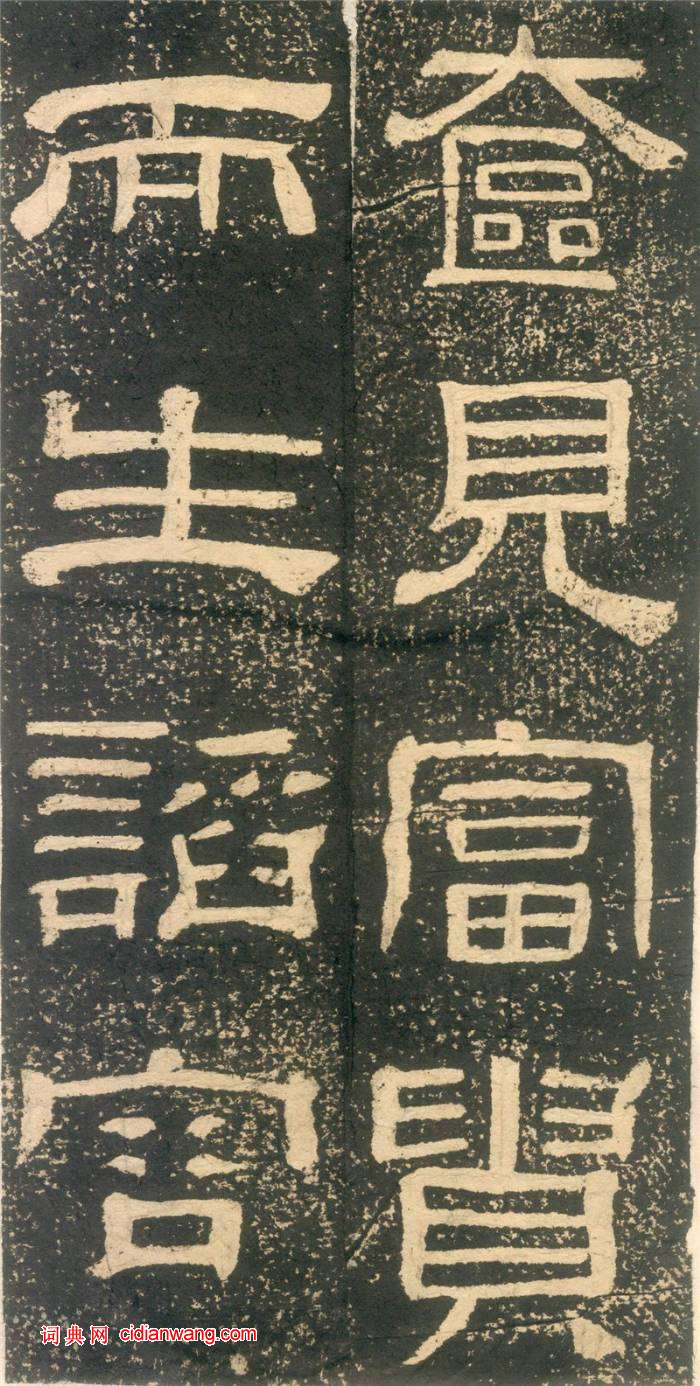 奩見富貴
而生諂容
词典网 cidianwang.com